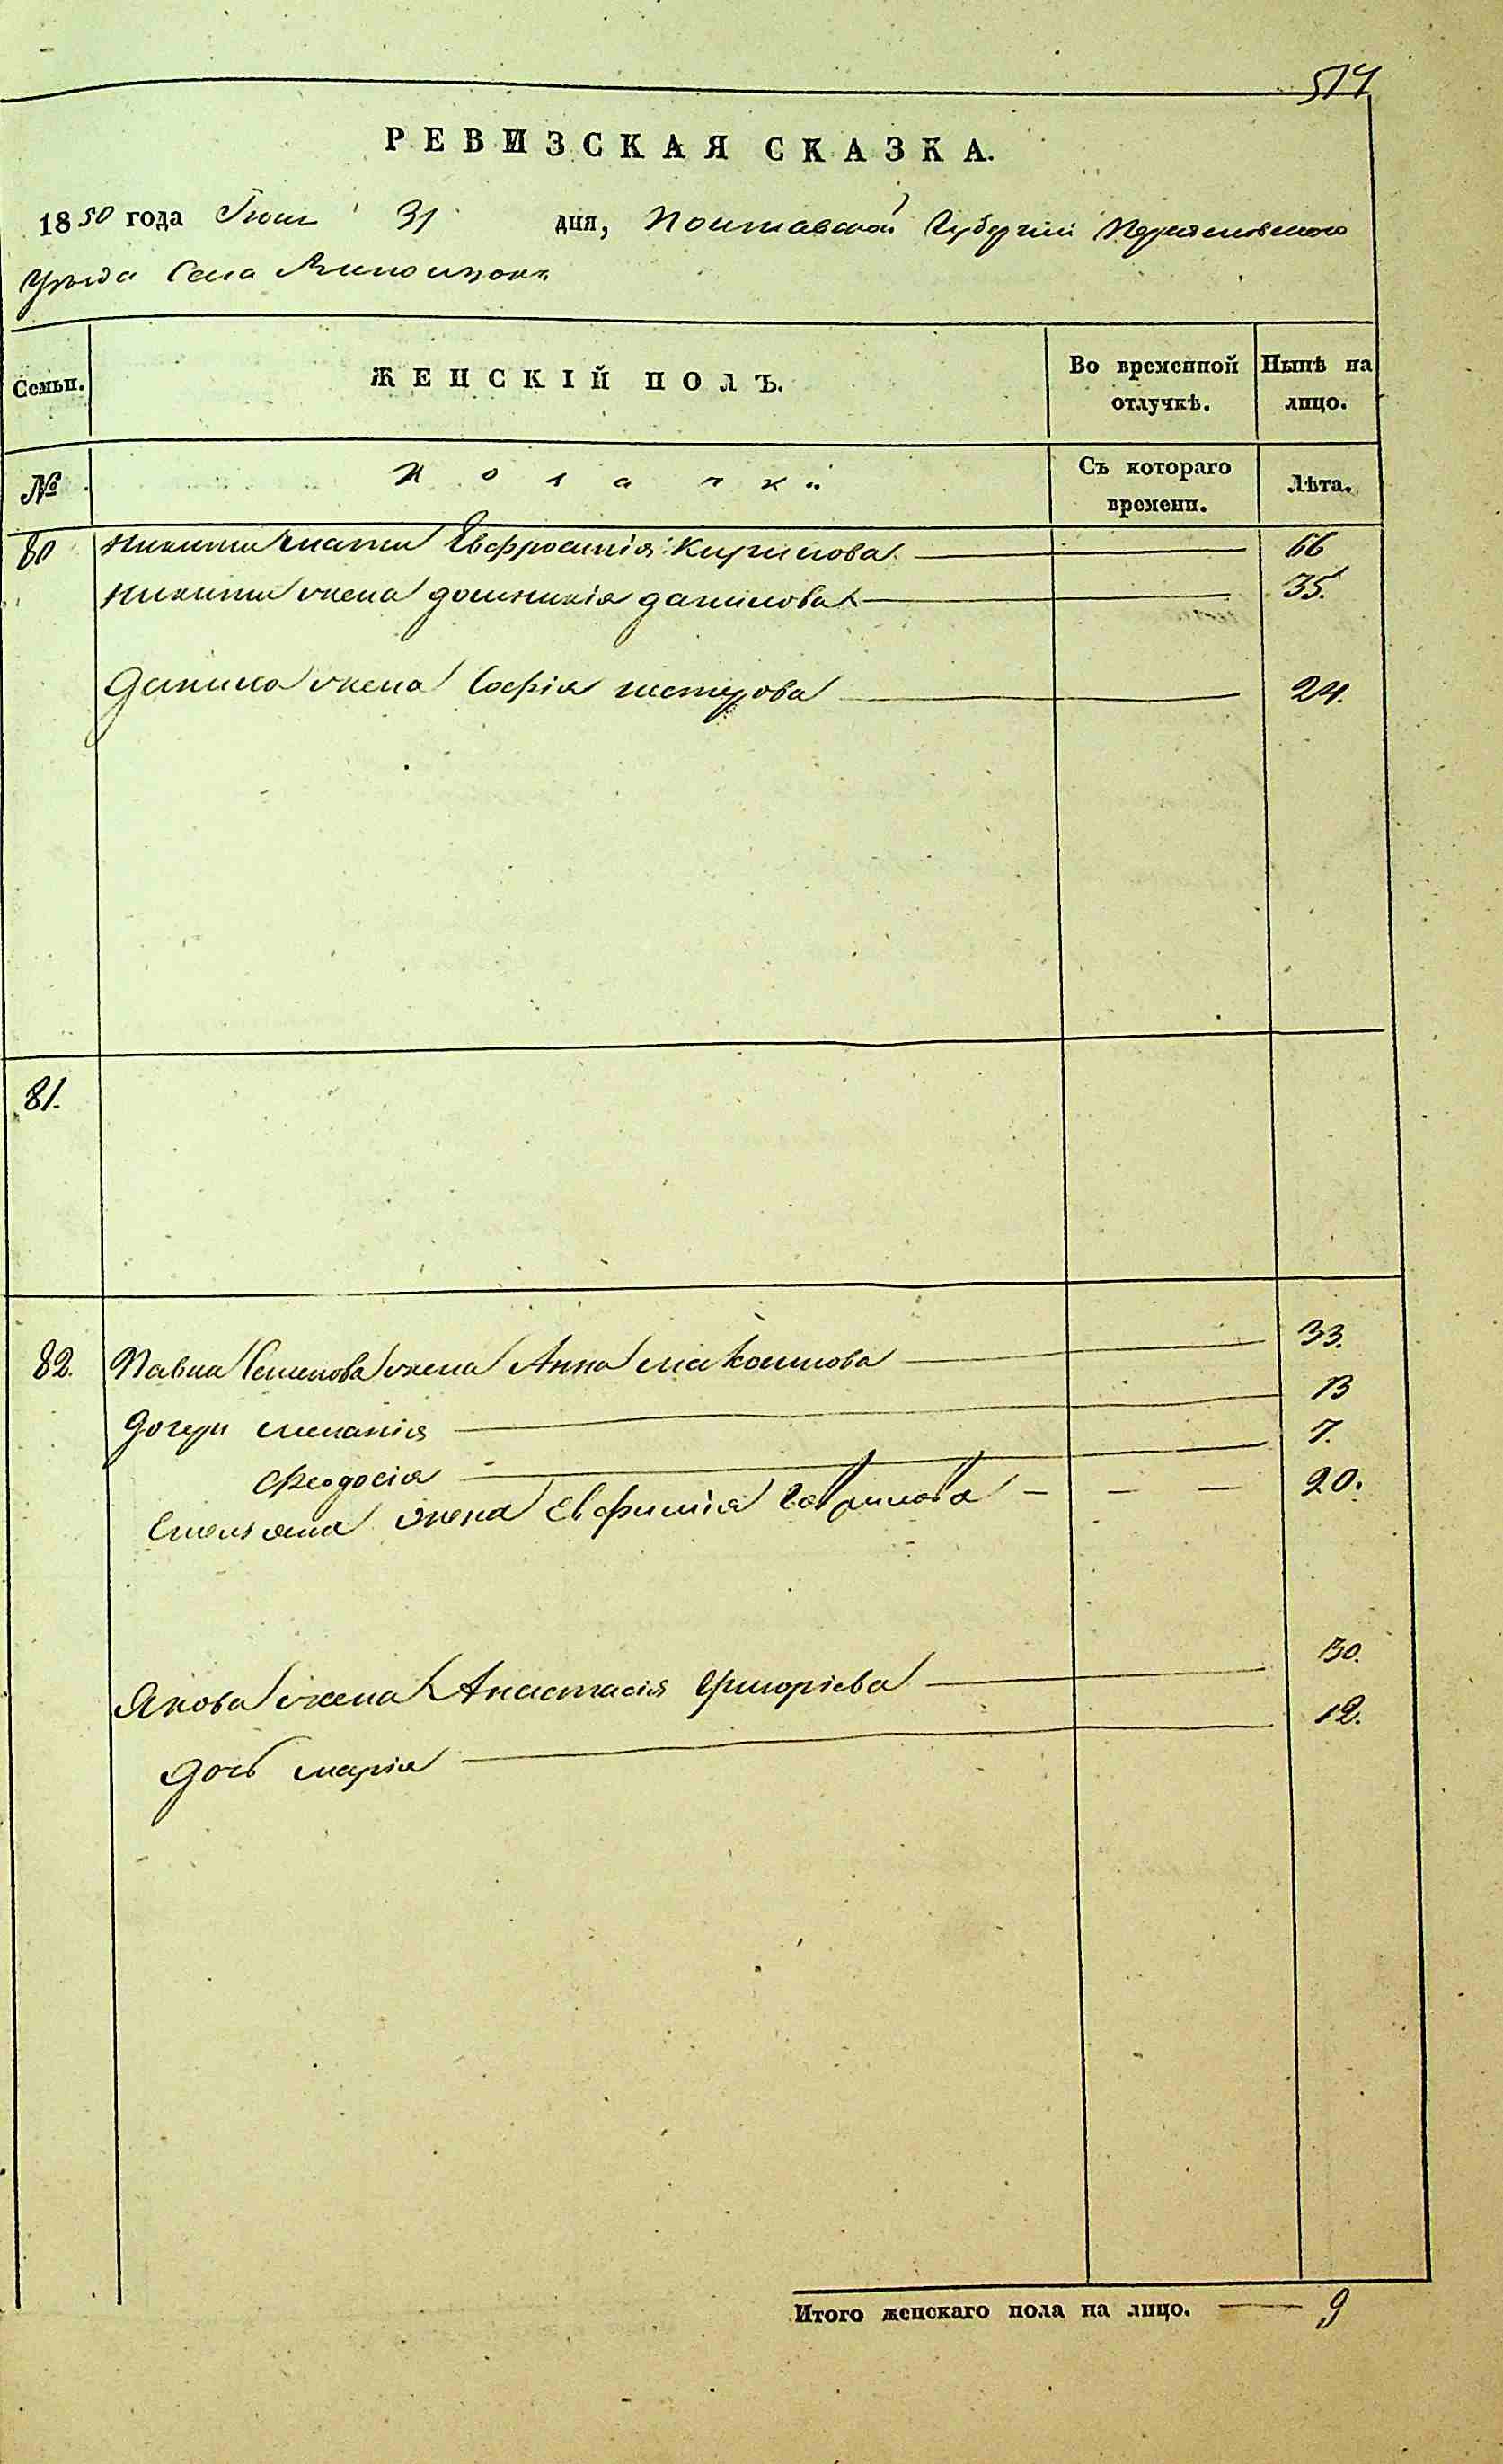 514
РЕВИЗСКАЯ СКАЗКА.
1850 года Июля 31 дня, Полтавской Губерніи Переяславского
Уѣзда Села
Семьи. ЖЕНСКІЙ ПОЛЪ. Во временной отлучкѣ. Нынѣ на лицо.
№ Козачки Съ котораго времени. Лѣта.
80 Никити мати Евфросинія Кирилова 66
Никити жена Домникія Данилова 35.
Данила жена Софія Нестерова 24.
81.
82. Павла Семенова жена Анна Максимова 33.
Дочери Меланія 13
Феодосія 7.
Емельяна жена Евфимія Гаврилова 20.
Якова жена Анастасія Григоріева 30.
Дочь Марія 12.
Итого женскаго пола на лицо. 9